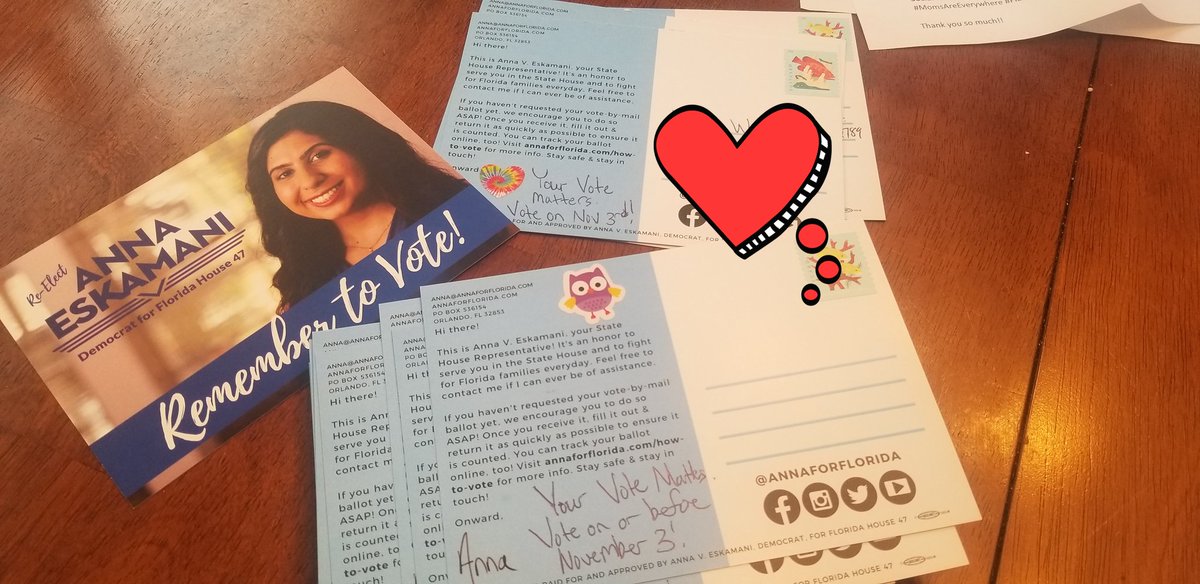 Re-Elect
ANNA
ESKAMANI
Democrat for Florida House 47
Remember to Vote!
ANNA@ANNAFORFLORIDA.COM
ANNAFORFLORIDA.COM
ANNA@ANNAFORFLORIDA.COM
ANNAFORFLORIDA.COM
PO BOX 536154
ORLANDO, FL 32853
Hi there!
This is Anna V. Eskamani, your State
House Representative! It's an honor to
serve you in the State House and to fight
for Florida families everyday. Feel free to
contact me if I can ever be of assistance.
If you haven't requested your vote-by-mail
ballot yet, we encourage you to do so
ASAP! Once you receive it, fill it out &
return it as quickly as possible to ensure it
is counted. You can track your ballot
online, too! Visit annaforflorida.com/how-
to-vote for more info. Stay safe & stay in
touch!
Onward
Your Vote
matters.
Vote on Nov 3rd!
FOR AND APPROVED BY ANNA V. ESKAMANI, DEMOCRAT, FOR
W
789
#MomsAreEverywhere
Thank you so much!!
ANNA@ANNAFORFLORIDA.COM
ANNAFORFLORIDA.COM
PO BOX 536154
ORLANDO, FL 32853
Hi there!
This is Anna V. Eskamani, your State
House Representative! It's an honor to
serve you in the State House and to fight
for Florida families everyday. Feel free to
contact me if I can ever be of assistance.
If you haven't requested your vote-by-mail
ballot yet, we encourage you to do so
ASAP! Once you receive it, fill it out &
return it as quickly as possible to ensure it
is counted. You can track your ballot
online, too! Visit annaforflorida.com/how-
to-vote for more info. Stay safe & stay in
touch!
Onward,
Anna
Your Vote Matters.
Vote on or before
November 3!
@ANNAFORFLORIDA
PAID FOR AND APPROVED BY ANNA V. ESKAMANI, DEMOCRAT, FOR FLORIDA HOUSE 47
ANNA@ANNAFOR
ANNAFORFLORIDA
PO BOX 536154
ORLANDO, FL
Hi there!
This is Ann
House Repr
serve you
for Florida
contact m
If you hav
ballot yet
ASAP! On
return it a
is counte
online, to
to-vote fo
touch!